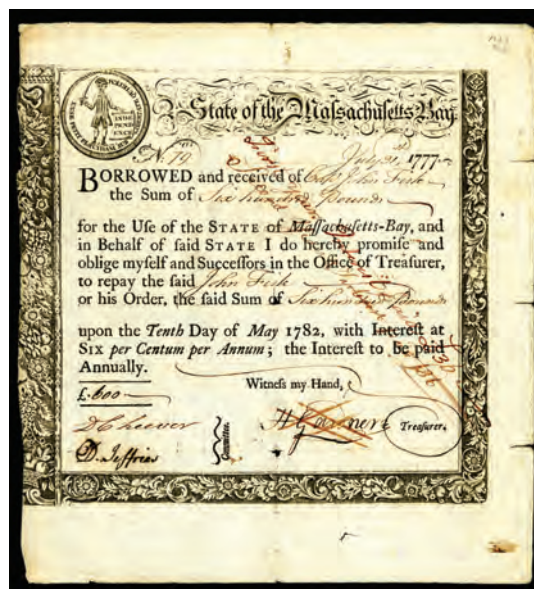 State of the Maſſachuſetts-Bay.
No. 79
July 21st 1777.
BORROWED and received of Capt John Fisk
the Sum of Six hundred Pounds
for the Uſe of the STATE of Maſſachuſetts-Bay, and
in Behalf of ſaid STATE I do hereby promiſe and
oblige myſelf and Succeſſors in the Office of Treaſurer,
to repay the ſaid John Fisk
or his Order, the ſaid Sum of Six hundred Pounds
upon the Tenth Day of May 1782, with Intereſt at
SIX per Centum per Annum; the Intereſt to be paid
Annually.
Witneſs my Hand,
£.600
D Cheever
Committee.
H Gardner
Treaſurer.
D. Jeffries